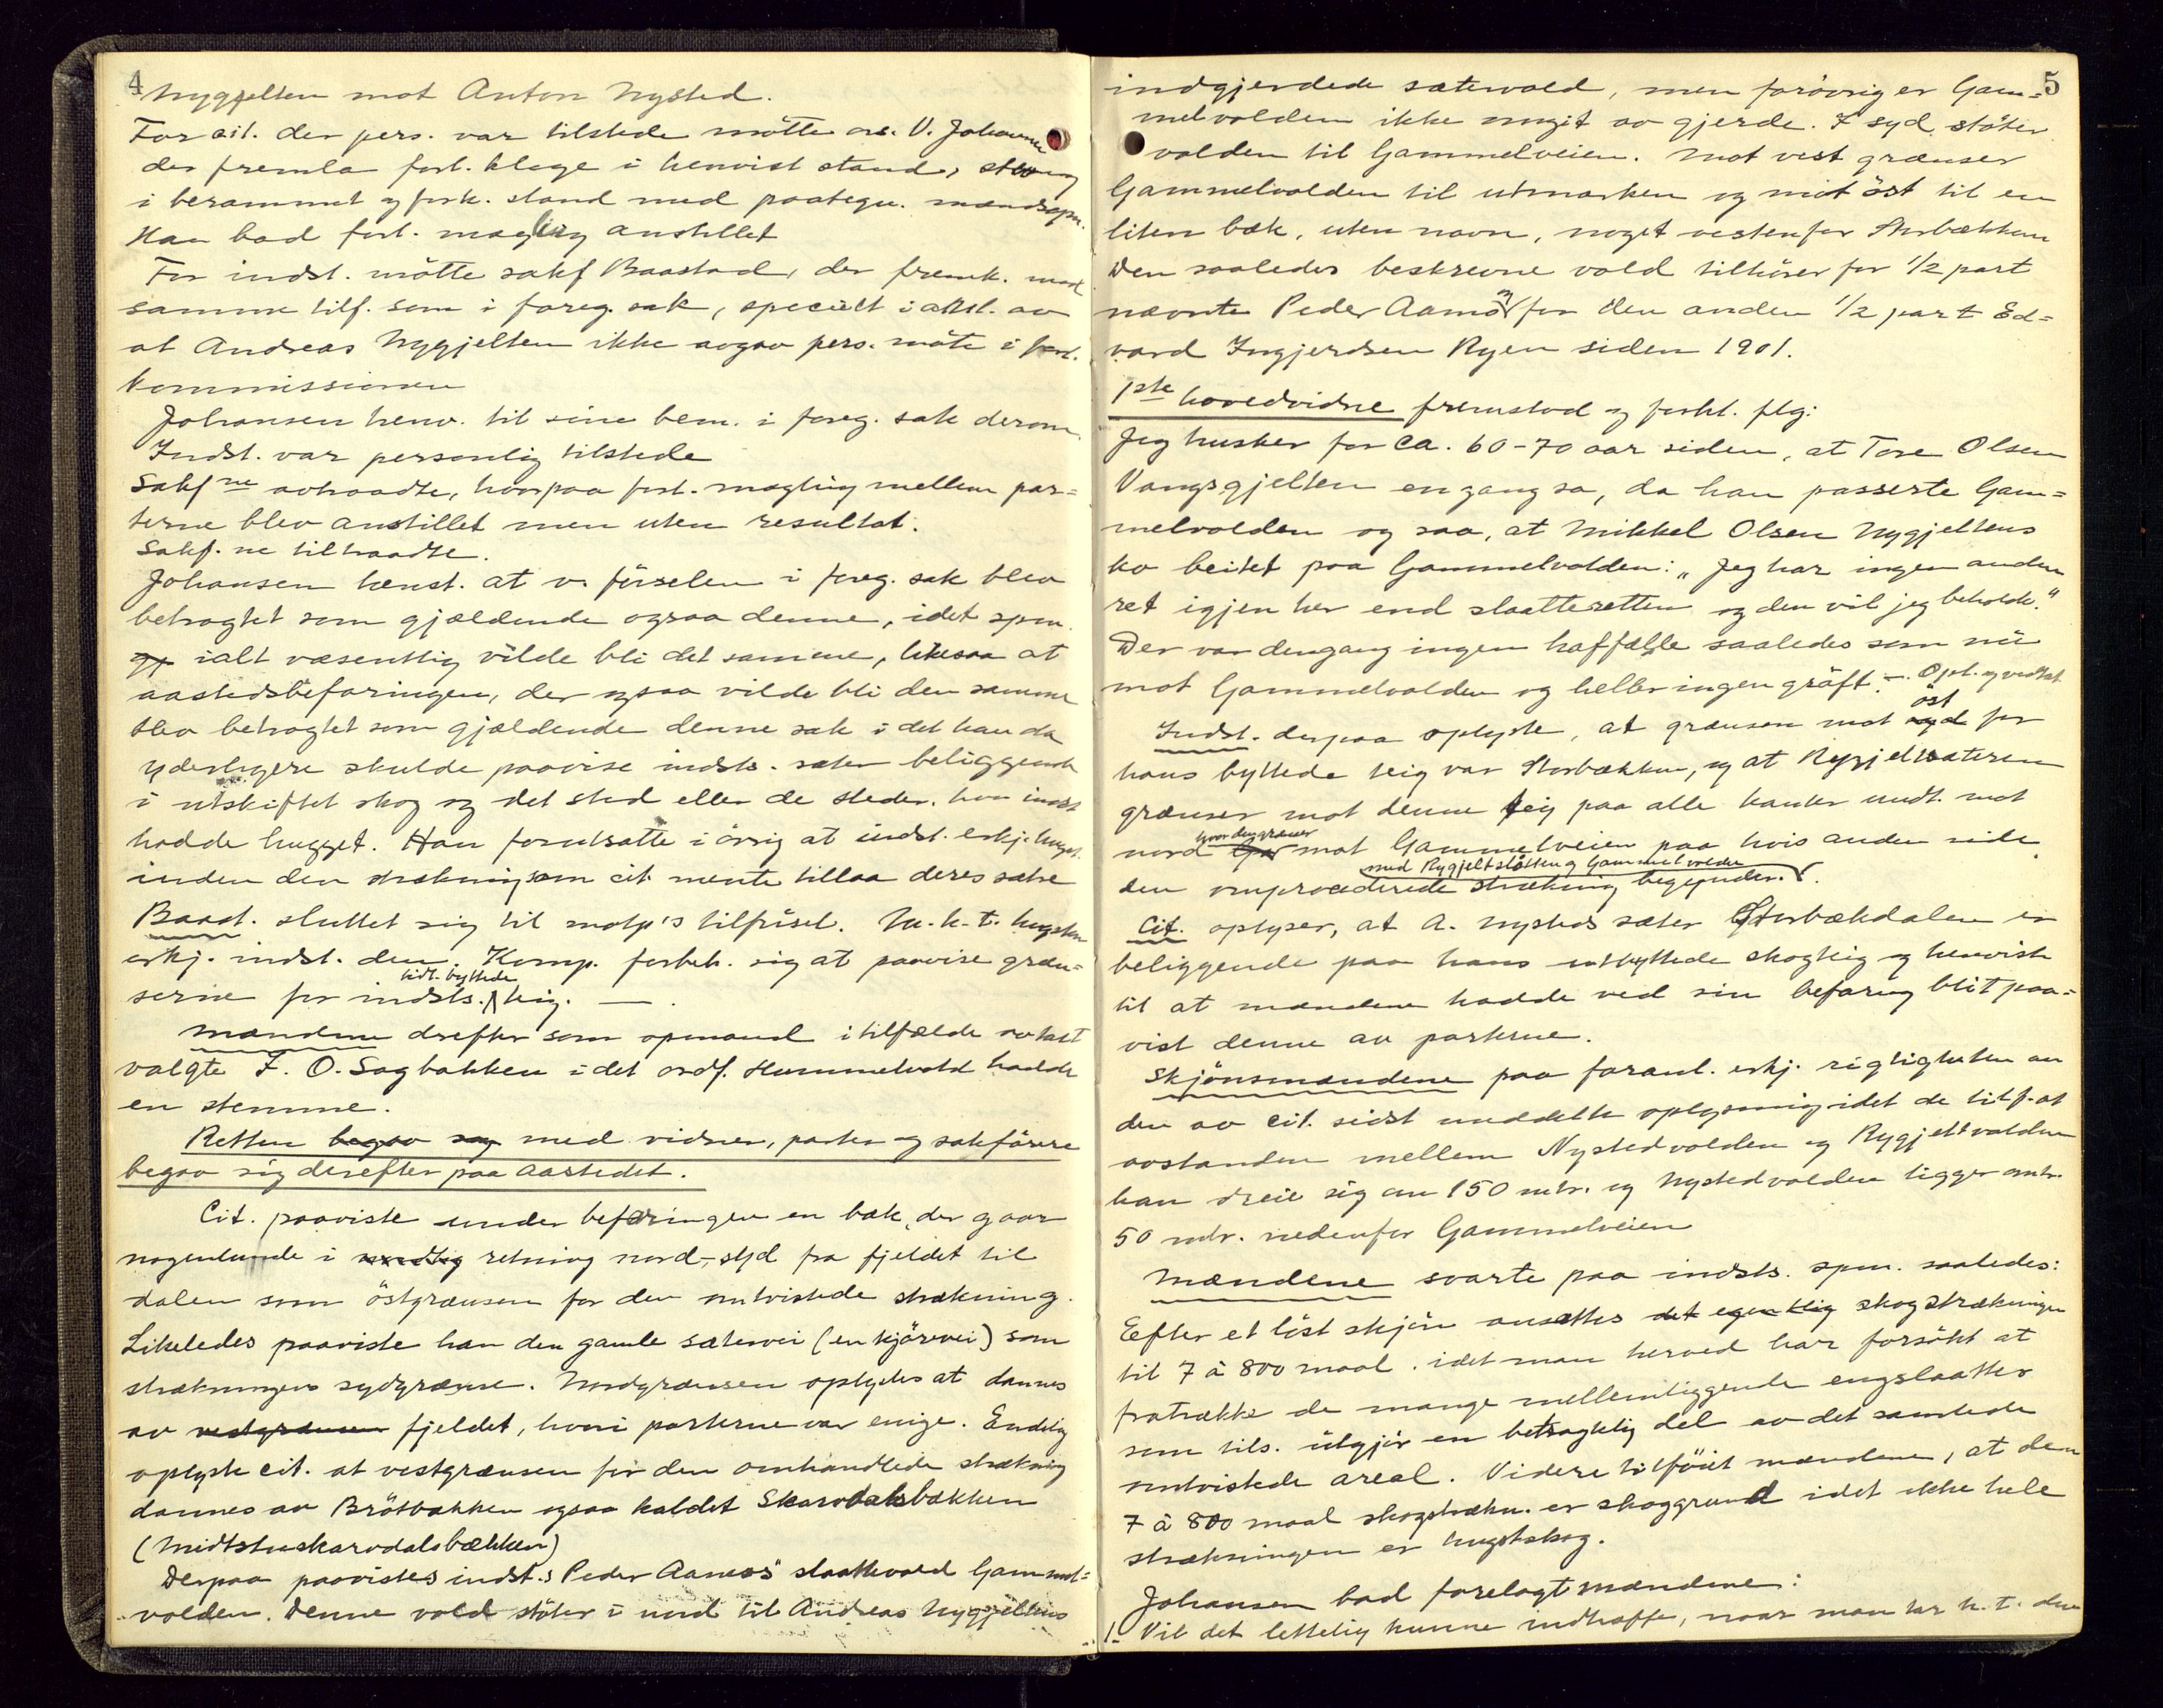 4
Nygjelten mot Anton Nysted.
For cit. der pers. var tilstede mötte ors. V. Johansen
der fremla forl. klage i henvist stand, stevning
i berammet og fork. stand med paategn.
Han bad forl. mægling anstillet
For indst. mötte sakf Baastad, der fremk. med
samme tilf. som i foreg. sak, specielt i anl. av
at Andreas Nygjelten ikke avgav pers. möte i forl.
kommissionen
Johansen henv. til sine bem. i foreg. sak derom.
Indst. var personlig tilstede
Sakf ne avtraadte, hvorpaa forl. mægling mellem par=
terne blev anstillet men uten resultat.
Sakf. ne tiltraadte.
Johansen henst. at v. förselen i foreg. sak blev
betragtet som gjældende ogsaa denne, idet spm.
ialt væsentlig vilde bli det samme, likesaa at
aastedsbefaringen, der ogsaa vilde bli den samme
blev betragtet som gjældende denne sak idet han da
yderligere skulde paavise indsts. sæter beliggende
i utskiftet skog og det sted eller de steder, hvor indst
hadde hugget. Han forutsatte i övrig at indst. erkj. hugst.
inden den strækning som cit. mente tillaa deres sætre
Baast. sluttet sig til motp's tilförsel. M. h. t. hugsten
erkj. indst. den. Komp. forbeh. sig at paavise græn=
serne for indsts. utbyttede teig. —.
Mændene derefter som opmand i tilfælde av
valgte I. O. Sagbakken idet ordf. Hummelvold hadde
en stemme.
Retten begav sig med vidner, parter og sakförere
begav sig derefter paa aastedet.
Cit. paaviste under befaringen en bæk, der gaar
nogenlunde i retning nord-syd fra fjeldet til
dalen som östgrænsen for den omtvistede strækning.
Likeledes paaviste han den gamle sætervei (en kjörevei) som
strækningens sydgrænse. Nordgrænsen oplystes at dannes
av vestgrænsen fjeldet, hvori parterne var enige. Endelig
oplyste cit. at vestgrænsen for den omhandlede strækning
dannes av Brötbækken ogsaa kaldet Skarvdalsbækken
(Midtstuskarvdalsbækken)
Derpaa paavistes indst.s Peder Aamos' slaattevold Gammel=
volden. Denne vold stöter i nord til Andreas Nygjeltens
5
indgjerdede sætervold, men forövrig er Gam=
melvolden ikke omgit av gjerde. I syd stöter
volden til Gammelveien. Mot vest grænser
Gammelvolden til utmarken og mot öst til en
liten bæk, uten navn, noget vestenfor Storbækken
Den saaledes beskrevne vold tilhörer for 1/2 part
nævnte Peder Aamo og for den anden 1/2 part Ed=
vard Ingjerdsen Ryen siden 1901.
1ste hovedvidne fremstod og forkl. flg:
Jeg husker for ca. 60-70 aar siden, at Tore Olsen
Vangsgjelten engang sa, da han passerte Gam=
melvolden og saa, at Mikkel Olsen Nygjeltens
ko beitet paa Gammelvolden: "Jeg har ingen anden
ret igjen her end slaatteretten og den vil jeg beholde."
Der var dengang ingen haffælle saaledes som nu
mot Gammelvolden og heller ingen gröft. —. Opl. og vedtat.
Indst. derpaa oplyste, at grænsen mot syd öst for
hans byttede teig var Storbækken, og at Rygjeltsæteren
grænser mot denne teig paa alle kanter undt. mot
nord hvor den grænser mot Gammelveien paa hvis anden side
den omprocederede strækning med Rygjeltslåtten og Gammelvolden begynder.
Cit. oplyser, at A. Nysteds sæter Storbækdalen er
beliggende paa hans utbyttede skogteig og henviste
til at mændene hadde ved sin befaring blit paa=
vist denne av parterne.
Skjönsmændene paa foranl. erkj. rigtigheten av
den av cit. sidst meddelte oplysning idet de tilf. at
avstanden mellem Nystedvolden og Rygjeltvolden
kan dreie sig om 150 mtr. og Nystedvolden ligger omtr.
50 mtr. nedenfor Gammelveien
Mændene svarte paa indsts. spm. saaledes:
Eefter et löst skjön ansættes det egentlig skogstrækningen
til 7 à 800 maal. idet man herved har forsökt at
fratrække de mange mellemliggende engslaatter
som tils. utgjör en betragtelig del av det samlede
omtvistede areal. Videre tilföiet mændene, at den
7 à 800 maal skogstrækn. er skoggrund idet ikke hele
strækningen er hugstskog.
Johansen bad forelagt mændene:
1. Vil det lettelig kunne indtræffe, naar man har h. t. den